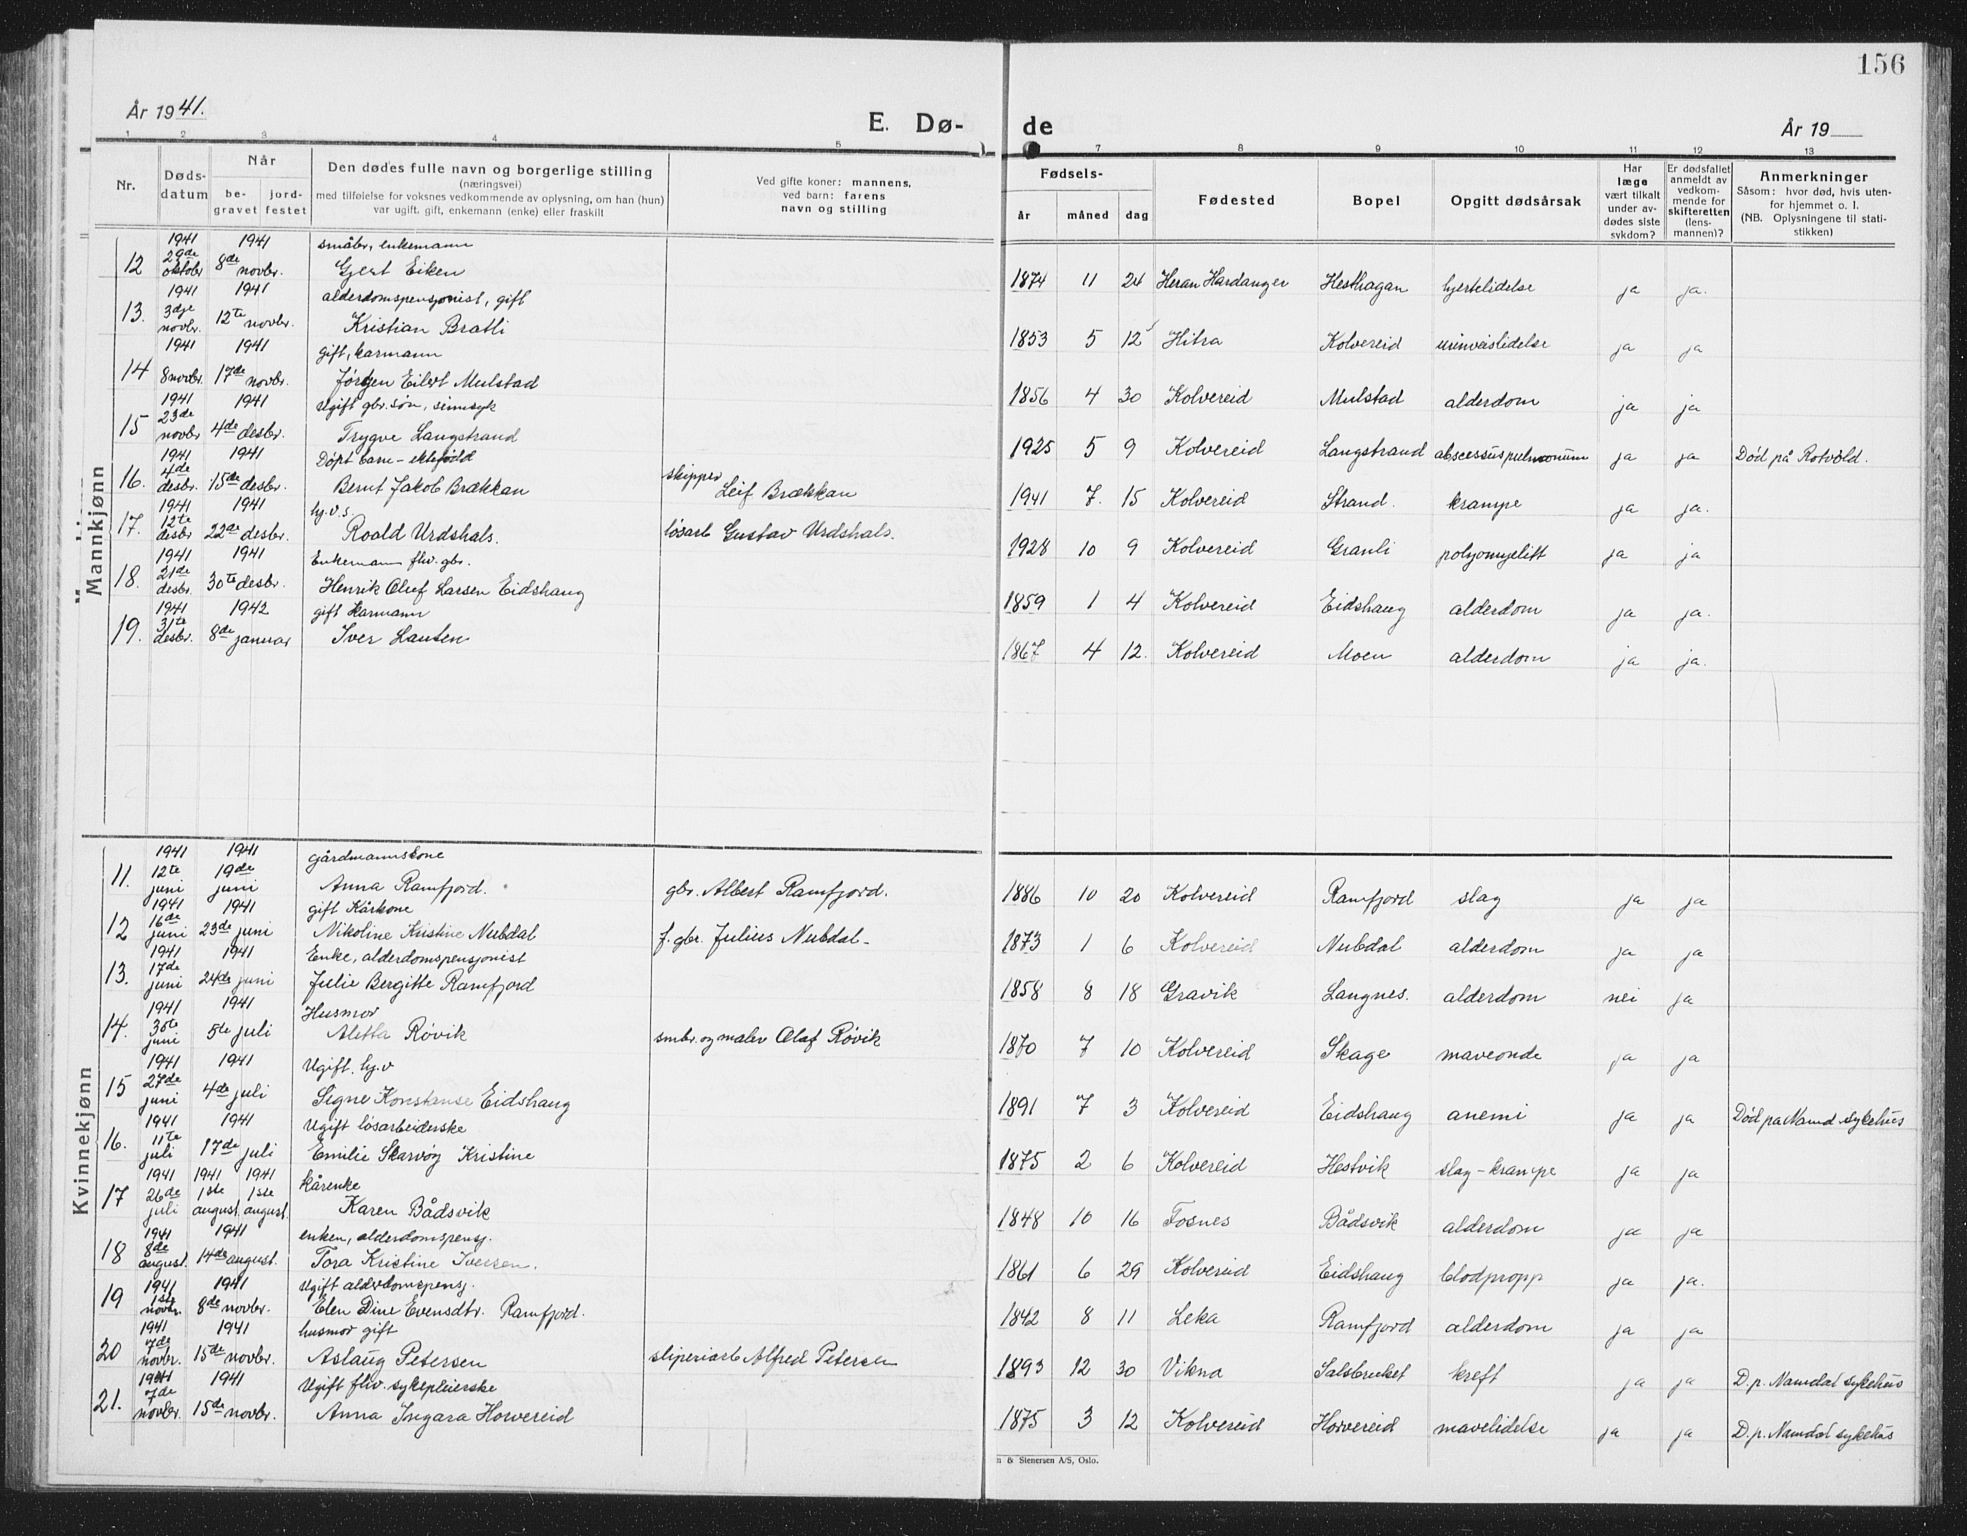 156
År 1941.
E. Dø-
de
År 19
1 2 3 4 5 7 8 9 10 11 12 13
Nr.
Døds-
datum
Når
be-
gravet
jord-
festet
Den dødes fulle navn og borgerlige stilling
(næringsvei)
med tilføielse for voksnes vedkommende av oplysning, om han (hun)
var ugift, gift, enkemann (enke) eller fraskilt
Ved gifte koner: mannens,
ved barn: farens
navn og stilling
Fødsels-
år måned dag
Fødested
Bopel
Opgitt dødsårsak
Har
læge
vært tilkalt
under av-
dødes siste
sykdom?
Er dødsfallet
anmeldt av
vedkom-
mende for
skifteretten
(lens-
mannen)?
Anmerkninger
Såsom: hvor død, hvis uten-
for hjemmet o. l.
(NB. Oplysningene til stati-
stikken)
Mannkjønn
1941 1941 småbr, enkemann
12 29de oktobr 8de novbr. Gjert Eiken 1874 11 24 Heran Hardanger Hesthagan hjertelidelse ja ja.
1941 1941 alderdomspensjonist, gift
13. 3dje novbr. 12te novbr. Kristian Bratli 1853 5 12 Hitra Kolvereid urinveislidelse ja ja
1941 1941 gift, karmann
14 8 novbr. 17de novbr. Jørgen Eilert Mulstad 1856 4 30 Kolvereid Mulstad alderdom ja ja
1941 1941 Ugift gbr. søn, sinnsyk
15 23de novbr 4de desbr. Trygve Langstrand 1925 5 9 Kolvereid Langstrand abscessus pulmonum ja ja Død på Rotvold.
1941 1941 Døpt barn - ektefødd
16. 4de desbr. 15de desbr. Bernt Jakob Brækkan skipper Leif Brækkan 1941 7. 15 Kolvereid Strand. krampe ja ja.
1941 1941 hj.v.s.
17. 12te desbr 22de desbr. Roald Urdshals. løsarb Gustav Urdshals. 1928 10 9 Kolvereid Granli polyomyelitt ja ja
1941 1941 Enkemann flv. gbr.
18. 21de desbr. 30te desbr. Henrik Oluf Larsen Eidshaug 1859 1 4 Kolvereid Eidshaug alderdom ja ja.
1941 1942 gift karmann
19. 31te desbr. 8de januar Iver Lauten 1867 4 12. Kolvereid Moen alderdom ja ja.
Kvinnekjønn
1941 1941 gårdmannskone
11. 12te juni 19de juni Anna Ramfjord. gbr. Albert Ramfjord. 1886 10 20 Kolvereid Ramfjord slag ja ja
1941 1941 gift Kårkone
12 16de juni 23de juni Nikoline Kristine Nubdal f. gbr. Julius Nubdal - 1873 1 6 Kolvereid Nubdal alderdom ja ja
1941 1941 Enke, alderdomspensjonist
13. 17de juni 24de juni Julie Bergitte Ramfjord 1858 8 18 Gravik Langnes. alderdom nei ja
1941 1941 Husmor
14. 30te juni 5te juli Aletta Røvik smbr. og maler Olaf Røvik 1870 7 10 Kolvereid Skage maveonde ja ja
1941 1941 Ugift. hj.v
15 27de juni 4de juli Signe Konstanse Eidshaug 1891 7 3 Kolvereid Eidshaug anemi ja ja Død på Namd. sykehus
1941 1941 Ugift løsarbeiderske
16. 11te juli 17de juli Emilie Skarvøy Kristine 1875 2 6 Kolvereid Hestvik slag - krampe ja ja
1941 1941 1941 kårenke
17 26de juli 1ste august 1ste august. Karen Bådsvik 1848 10 16 Fosnes Bådsvik alderdom ja ja
1941 1941 enken, alderdomspensj.
18 8de august. 14de august. Tora Kristine Iversen. 1861 6 29 Kolvereid Eidshaug blodpropp ja ja.
1941 1941 Ugift alderdomspensj.
19 1ste novbr. 8de novbr. Elen Dine Evensdtr. Ramfjord. 1842 8 11 Leka Ramfjord alderdom ja ja
1941 1941 husmor gift
20 7de novbr. 15de novbr. Aslaug Petersen sliperiarb Alfred Petersen 1893 12 30 Vikna Salsbruket kreft ja ja D. p. Namdal sykehus
1941 1941 Ugift flv. sykepleierske
21. 7de novbr. 15de novbr. Anna Ingara Horvereid 1875 3 12 Kolvereid Horvereid mavelidelse ja ja D. p. Namdal sykehus
n & Stenersen A/S, Oslo.